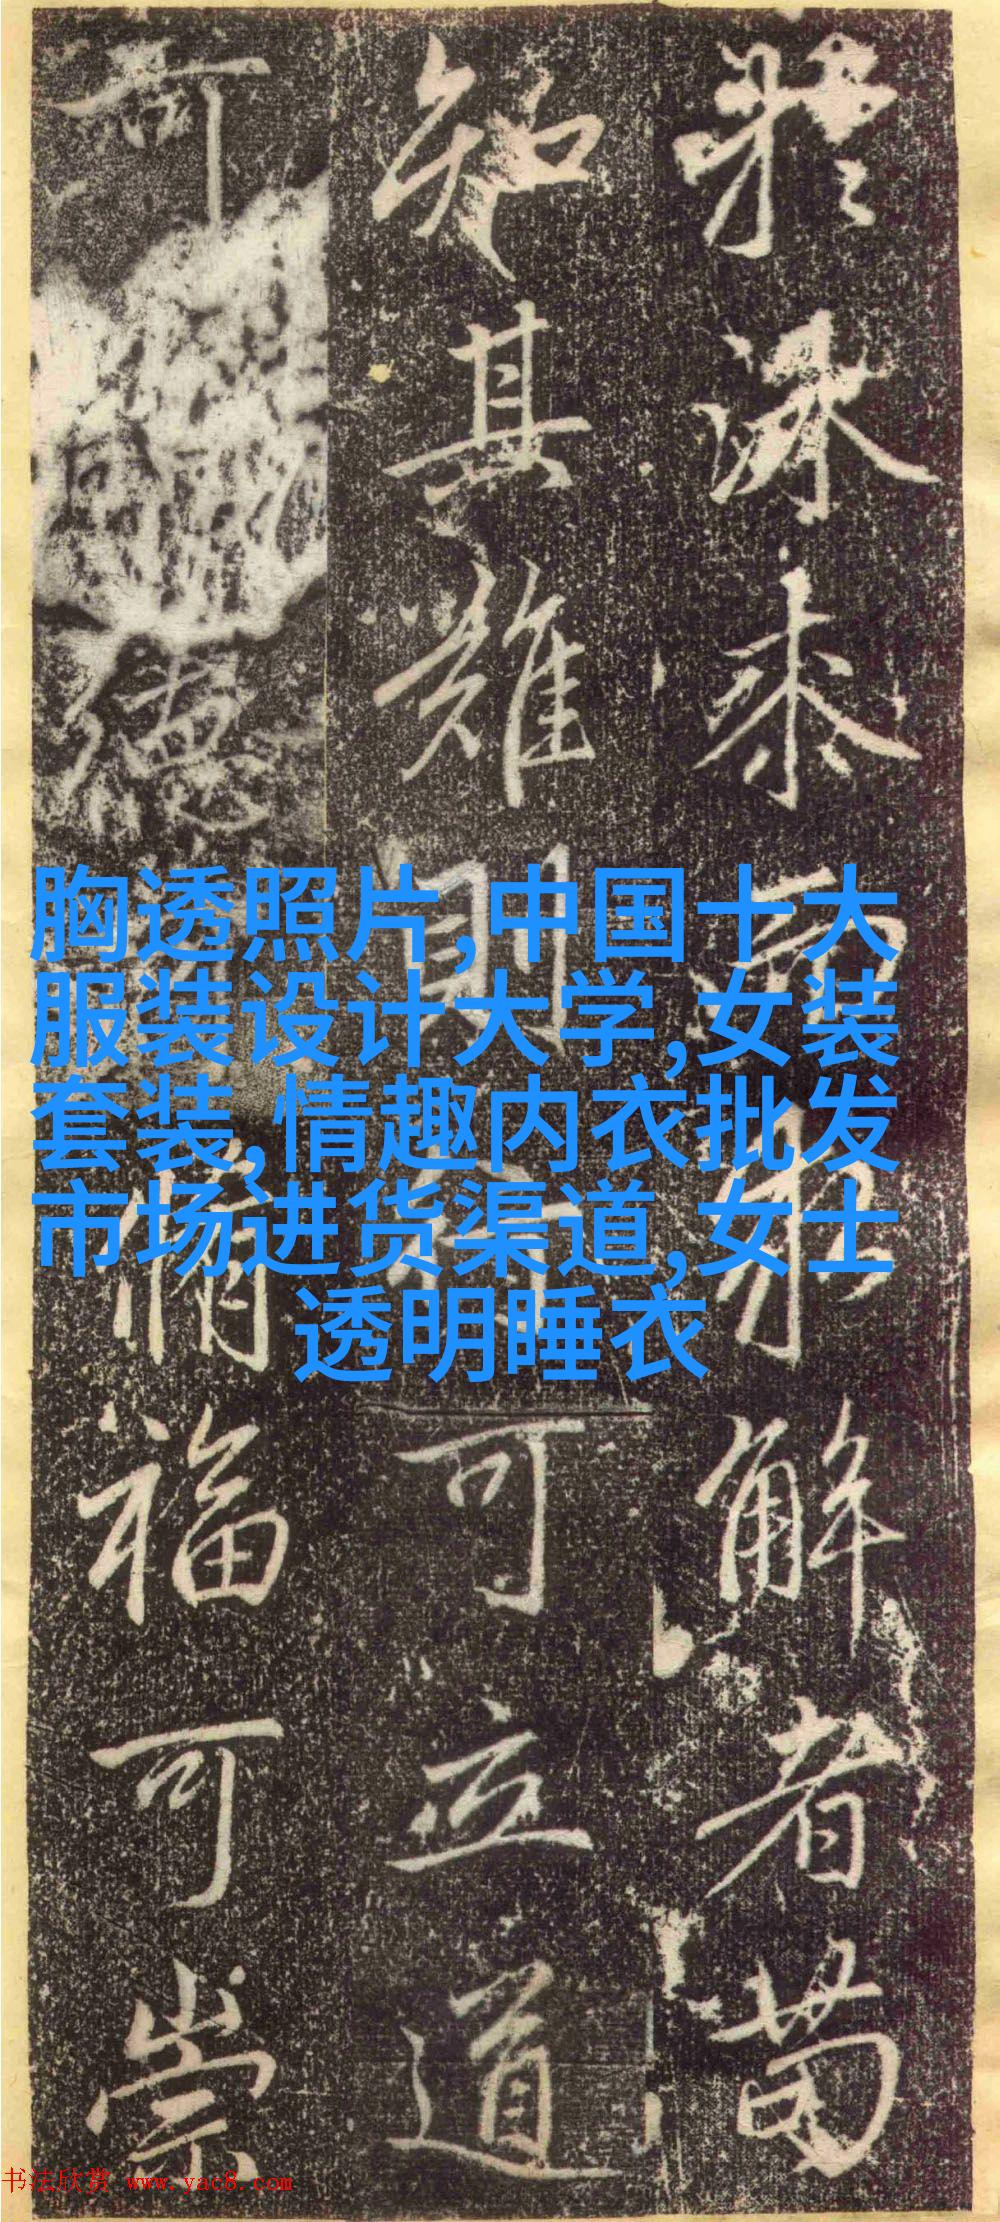 胸透照片,中国十大
服装设计大学,女装
套装,情趣内衣批发
市场进货渠道,女士
透明睡衣
於深而解者苟
知其難則可立道
可德脩福可崇
书法欣赏 www.yac8.com